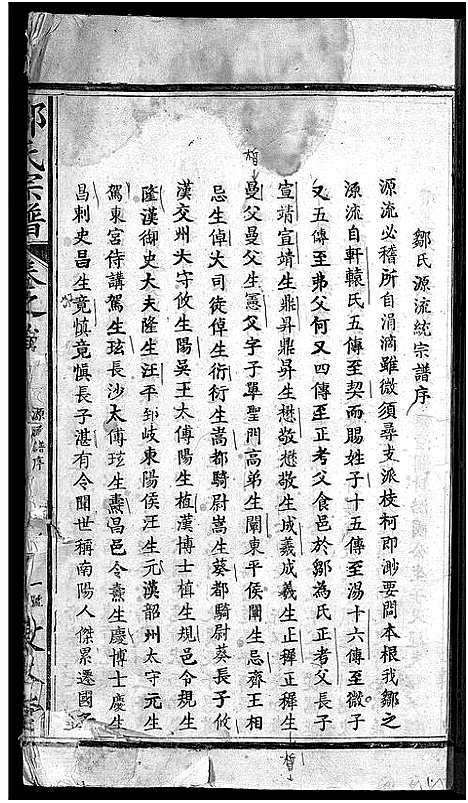 鄒氏源流統宗譜序
源流必稽所自涓滴雖微須尋支派枝柯即渺要問本根我鄒之
源流自軒轅氏五傳至契而賜姓子十五傳至湯十六傳至微子
又五傳至弗父何又四傳至正考父食邑於鄒為氏正考父長子
宣靖宣靖生鼎昇鼎昇生懋敬懋敬生成義成義生正穉正穉生
曼父曼父生憲父字子單聖門高弟生闡東平侯闡生忌齊王相
忌生倬大司徒倬生衍衍生嵩都騎尉嵩生葵都騎尉葵長子攸
漢交州大守攸生陽吳王太傅陽生植漢博士植生規邑令規生
隆漢御史大夫隆生汪平到岐東陽侯汪生元漢韶州太守元生
駕東宮侍講駕生玹長沙太傅玹生燾昌邑令燾生慶博士慶生
昌刺史昌生竟慎竟慎長子湛有令聞世稱南陽人傑累遷國之
氏宗譜
卷之
源流譜序
一號